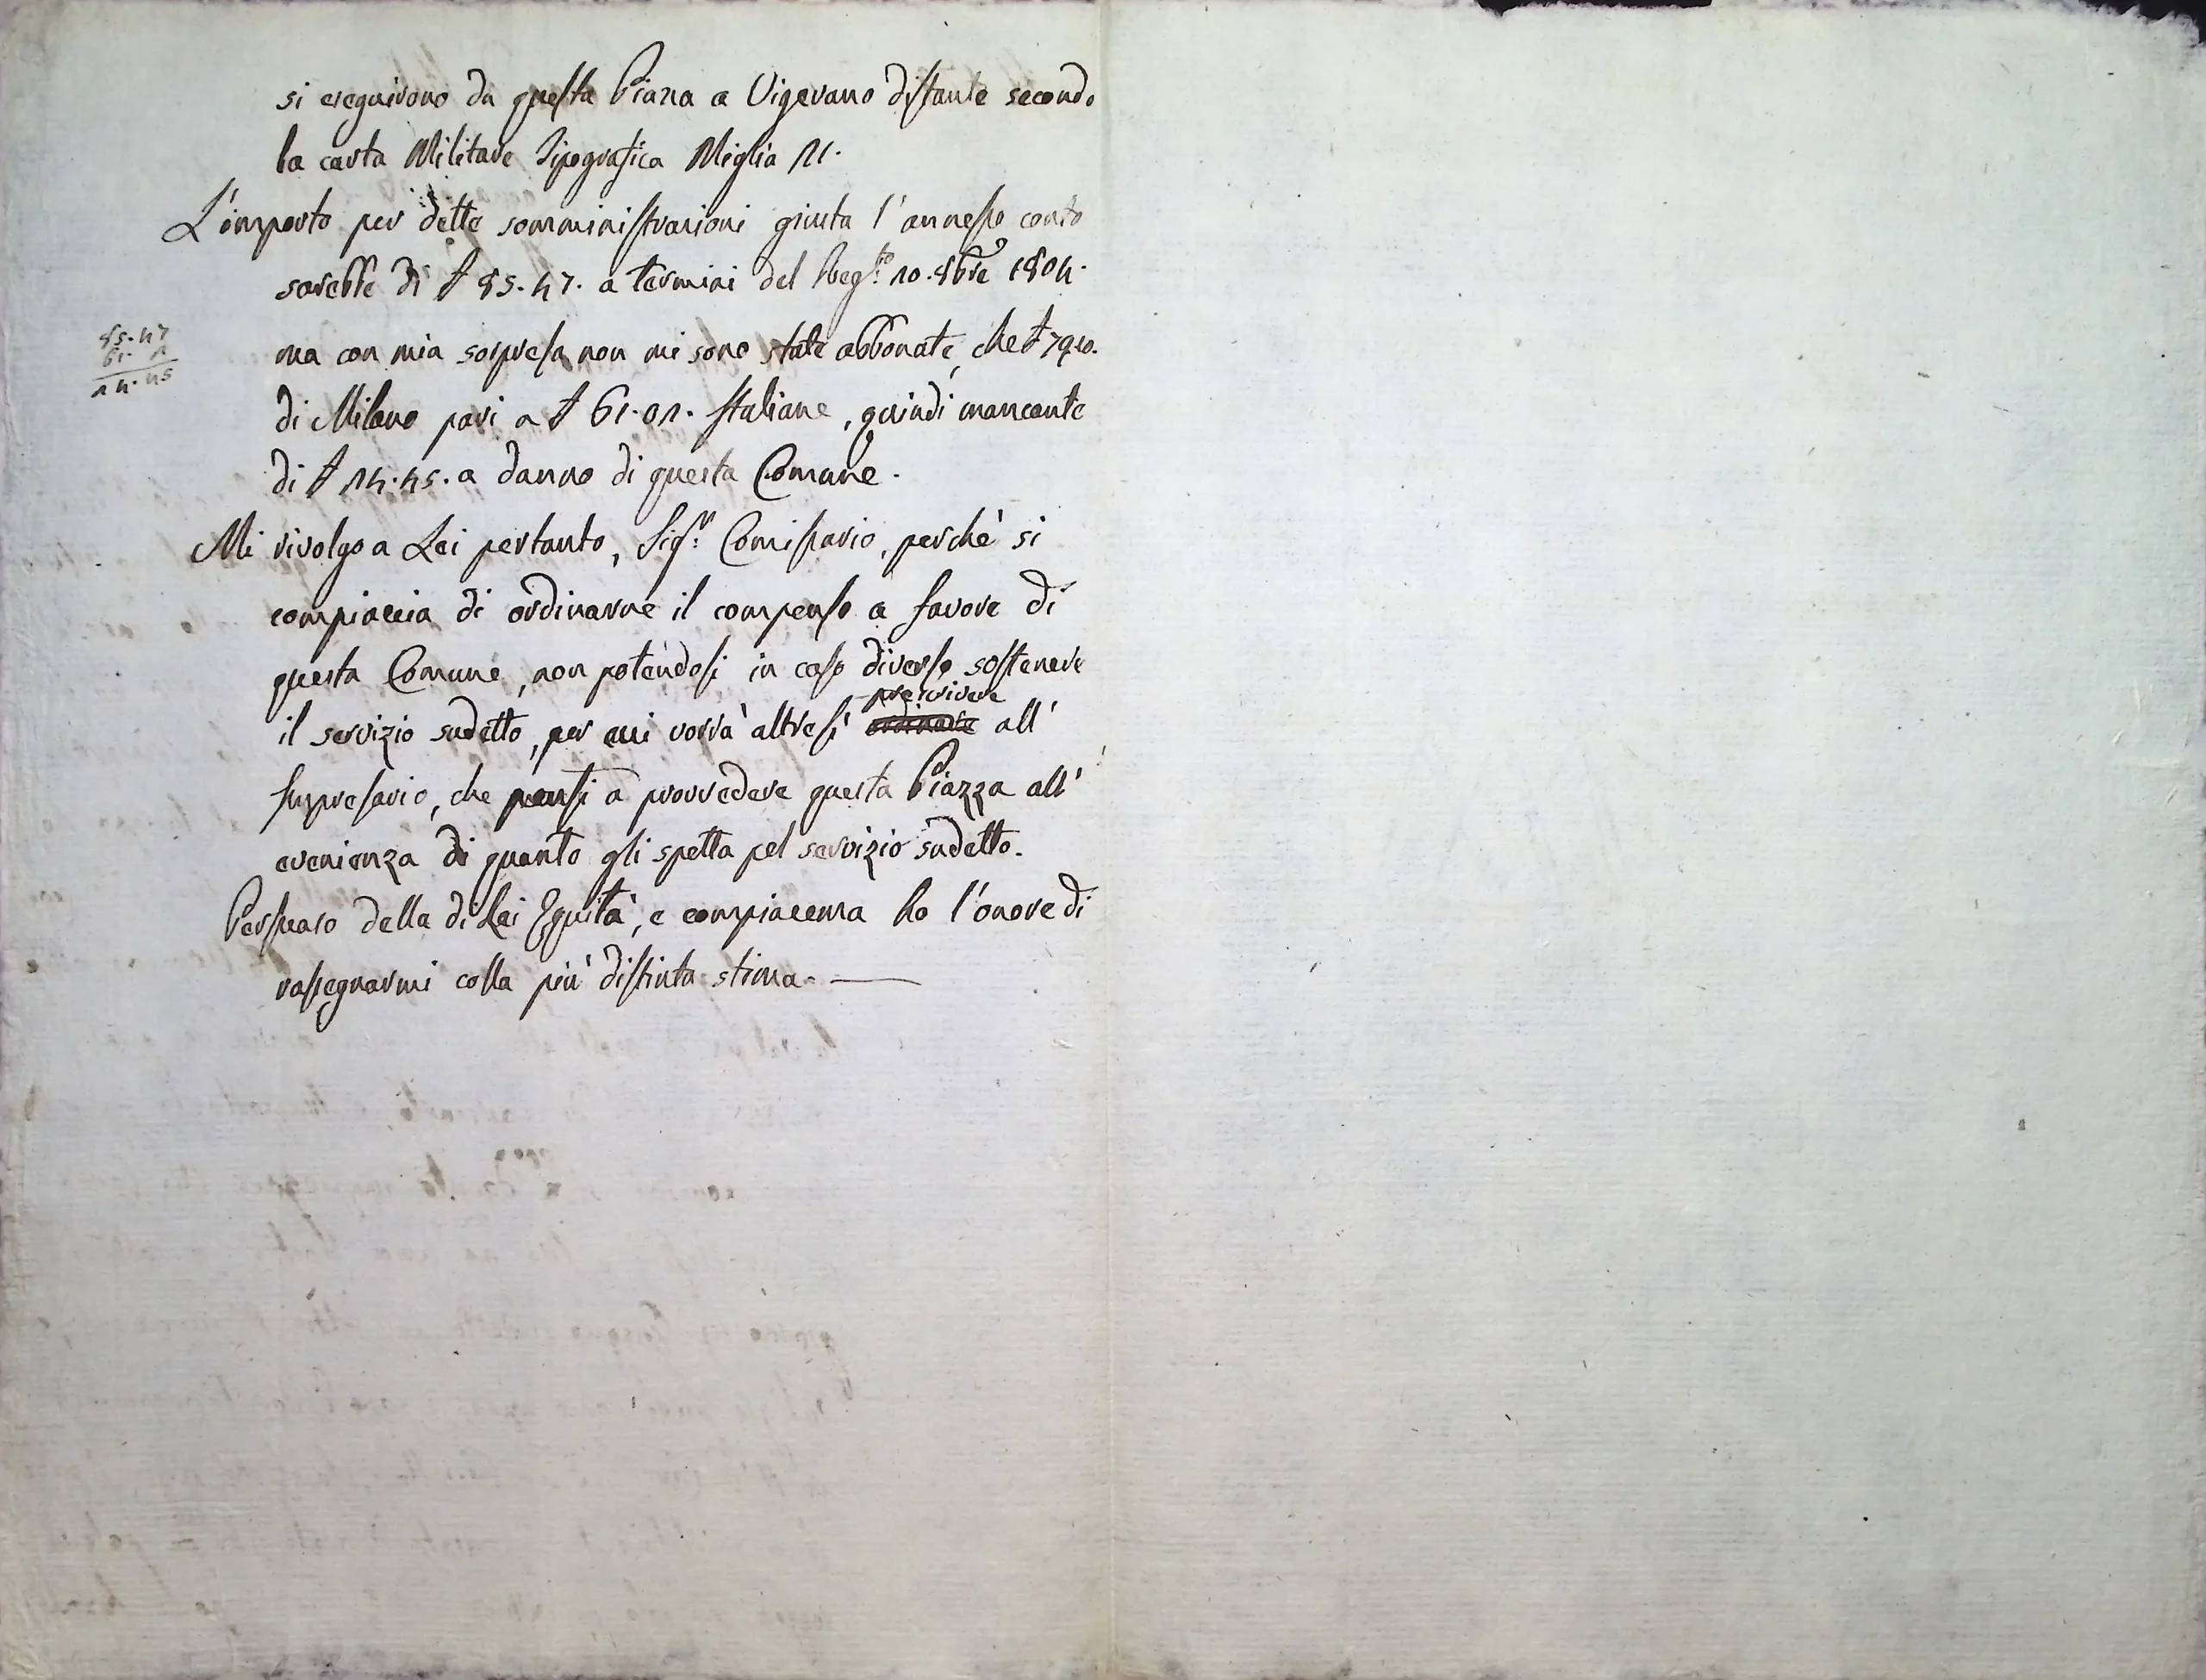 si eseguirono da questa Piazza a Vigevano distante secondo
la carta Militare Tipografica Miglia 21.
L'importo per dette somministrazioni giusta l'annesso conto
sarebbe di £ 85.47. a termini del Reg.to 10. 8bre 1804.
85.47
ma con mia sorpresa non mi sono state abbonate, che £ 79.10.
61. 1
24.45
di Milano pari a £ 61.01. Italiane, quindi mancante
di £ 24.45. a danno di questa Comune.
Mi rivolgo a Lei pertanto, Sig.r Comissario, perchè si
compiaccia di ordinarne il compenso a favore di
questa Comune, non potendosi in caso diverso sostenere
prescrivere
il servizio sudetto, per cui vorrà altresì ordinare all'
Impresario, che pensi a provvedere questa Piazza all'
evenienza di quanto gli spetta pel servizio sudetto.
Persuaso della di Lei Equità, e compiacenza ho l'onore di
rassegnarmi colla più distinta stima.